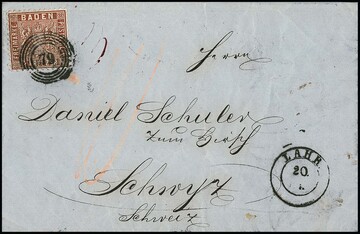 BADEN
79
Herrn
Daniel Schuler
zum Hirsch
Schwyz
Schweiz
LAHR
20.